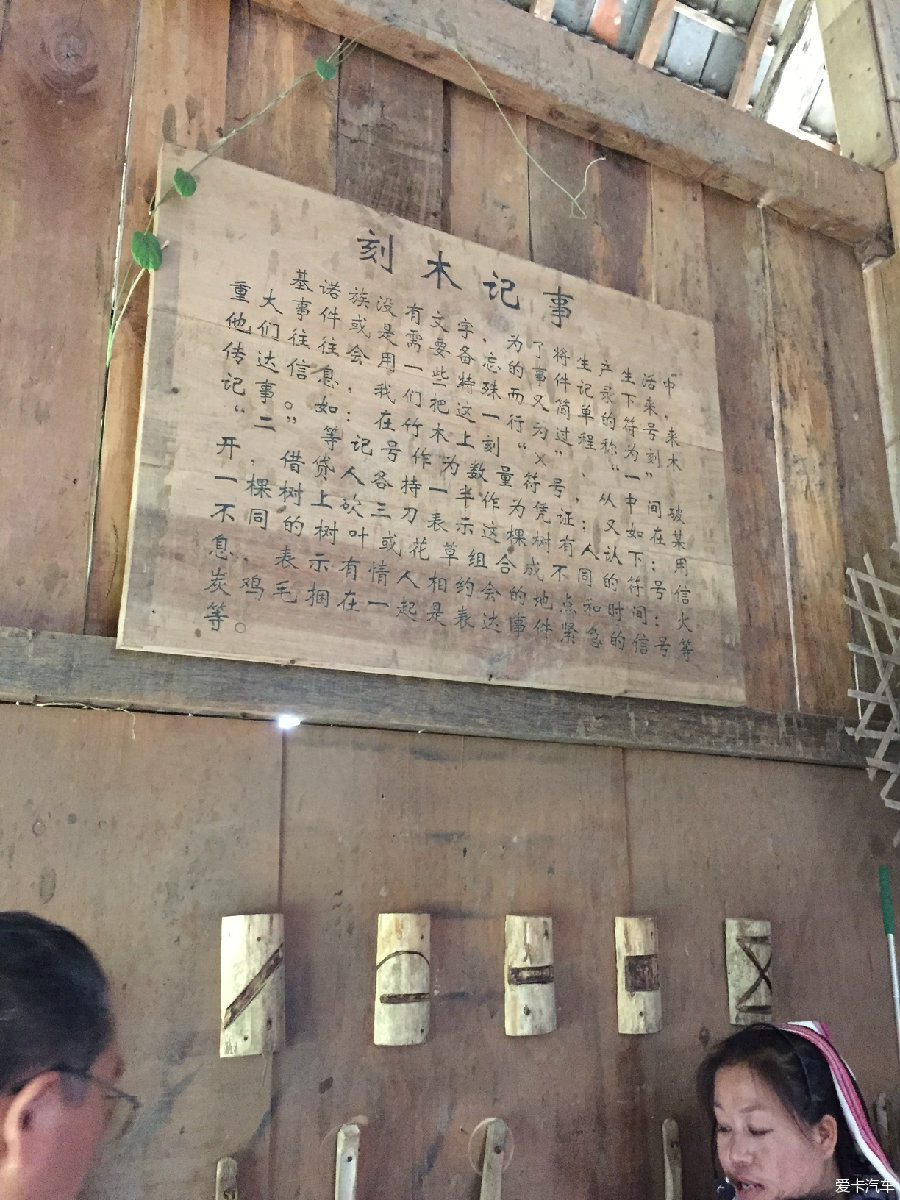 刻木记事
基诺族没有文字,为了将生产生活中,
重大事件或是需要备忘的事件记录下来,
他们往往会用一些特殊而又简单的符号来
传达信息,我们把这一行为过程称为“刻木
记事。”如:在竹木上刻“×”、“一”
“二”等记号作为数量符号,从中间破
开,借贷人各持一半作为凭证;又如在某
一棵树上砍三刀表示这棵树有人认下:用
不同的树叶或花草组合成不同的符号信
息,表示有情人相约会的地点和时间:火
炭、鸡毛捆在一起是表达事件紧急的信号等
等。
爱卡汽车